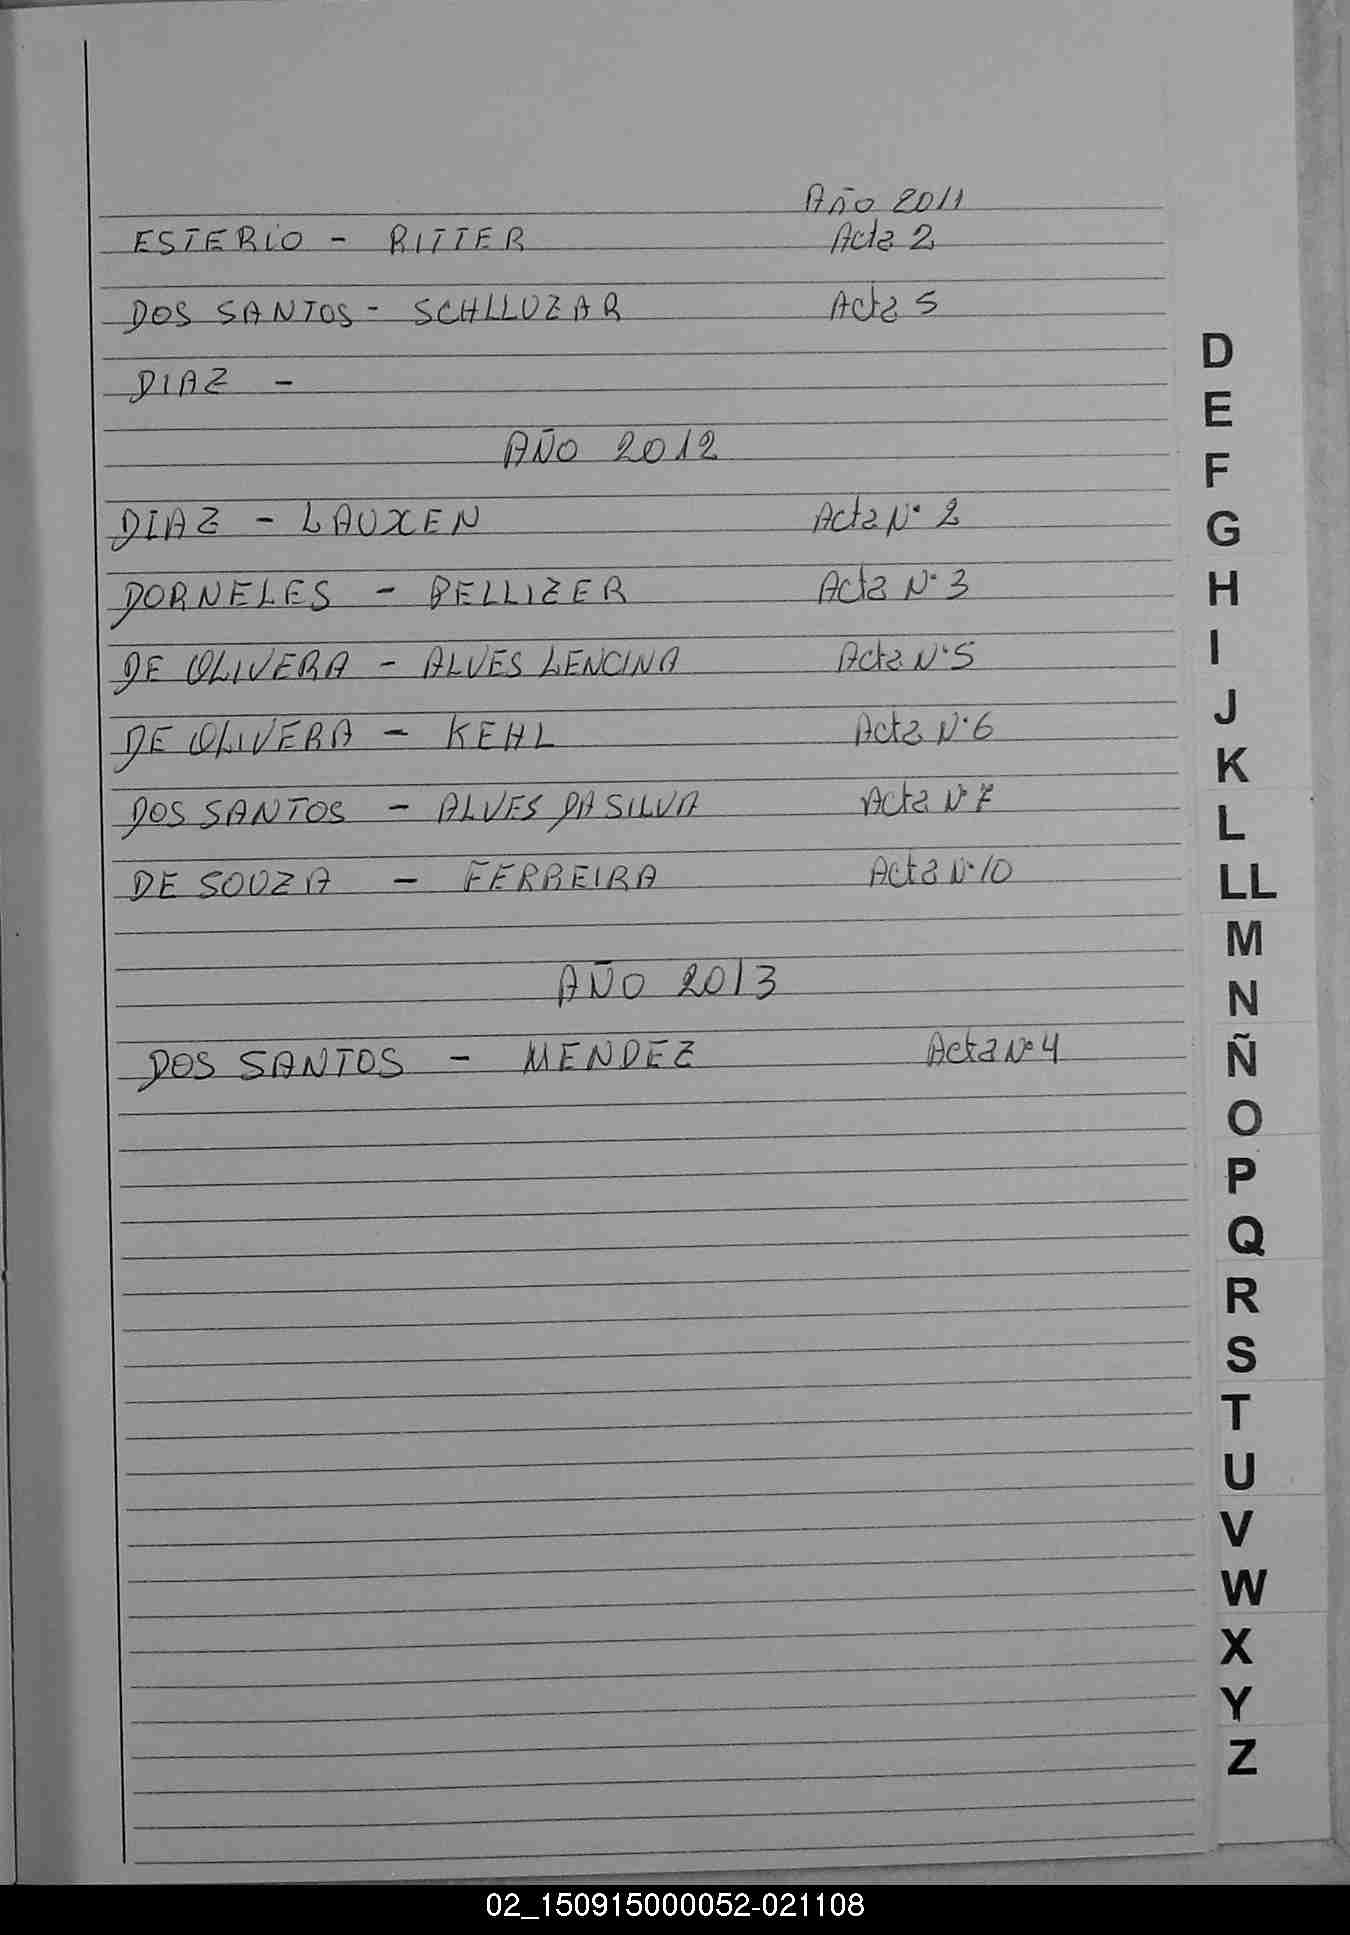 Año 2011
ESTERIO - RITTER Acta 2
DOS SANTOS - SCHLLUZAR Acta 5
DIAZ -
AÑO 2012
DIAZ - LAUXEN Acta N° 2
DORNELES - BELLIZER Acta N° 3
DE OLIVERA - ALVES LENCINA Acta N° 5
DE OLIVERA - KEHL Acta N° 6
DOS SANTOS - ALVES DA SILVA Acta N° 7
DE SOUZA - FERREIRA Acta N° 10
AÑO 2013
DOS SANTOS - MENDEZ Acta N° 4
D
E
F
G
H
I
J
K
L
LL
M
N
Ñ
O
P
Q
R
S
T
U
V
W
X
Y
Z
02_150915000052-021108